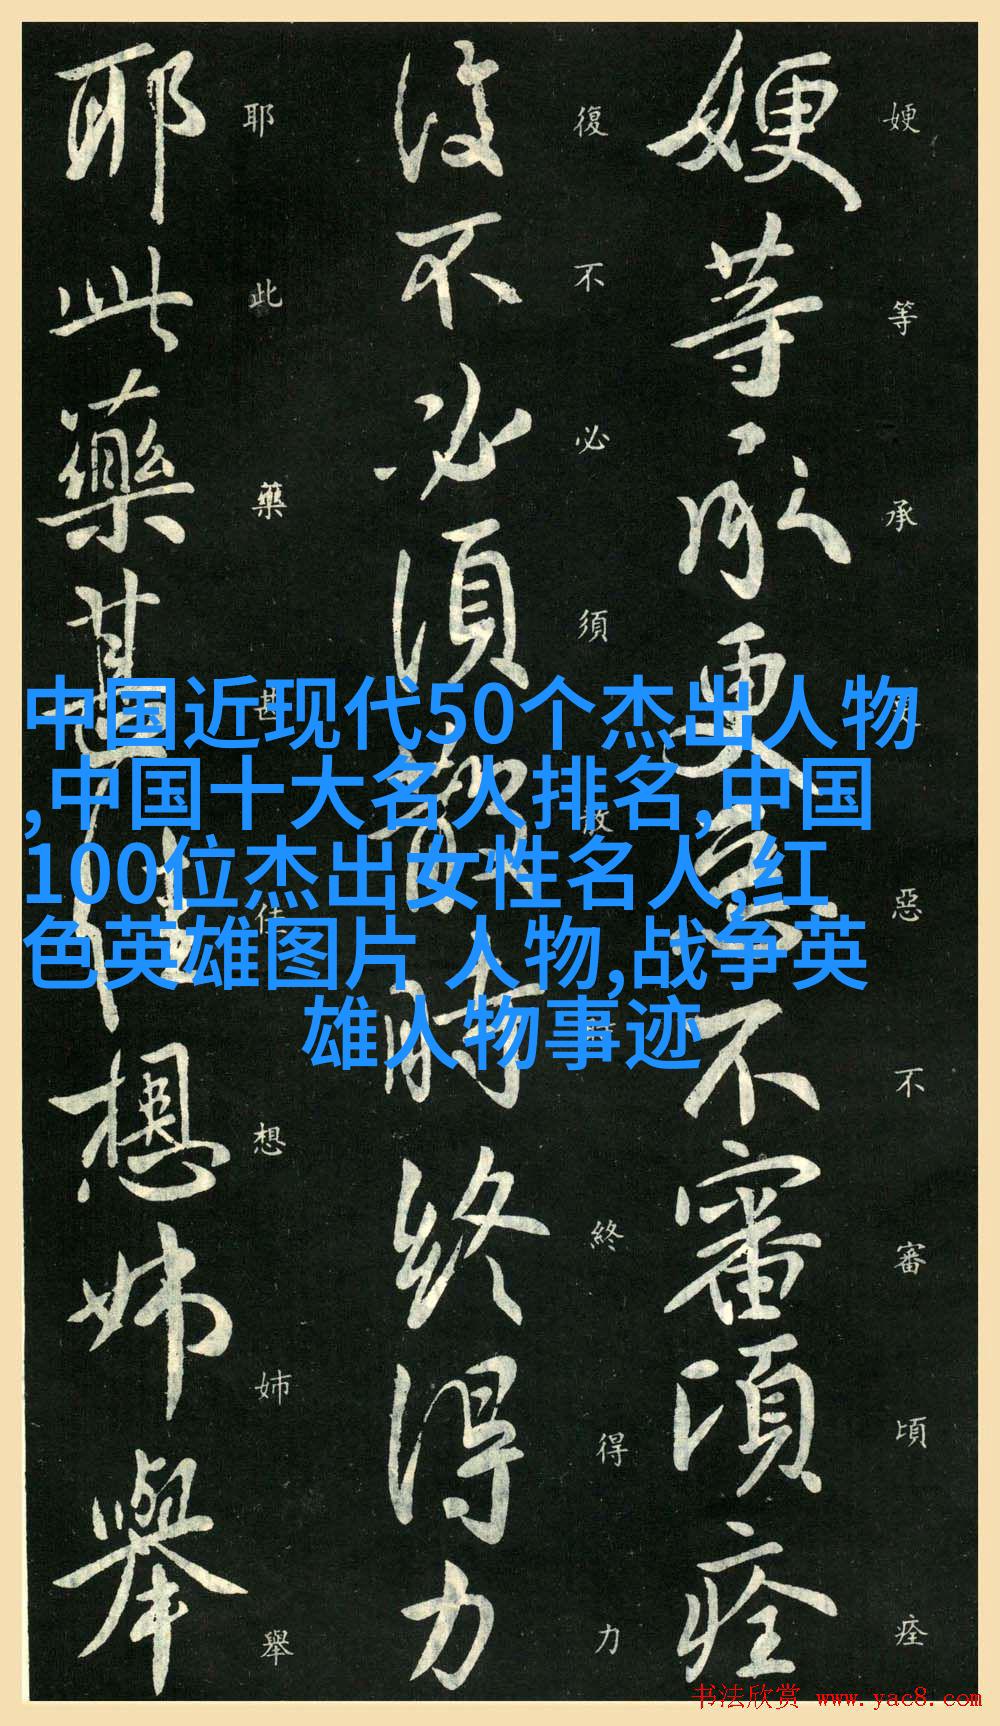 㛐等承更惡不審頃痊
㛐等承惡不審頃痊
復不必須散時終得力
復不必須散終得力
耶此藥甚佳想姊舉
耶此藥甚佳想姊舉
中国近现代50个杰出人物
,中国十大名人排名,中国
100位杰出女性名人,红
色英雄图片 人物,战争英
雄人物事迹
书法欣赏 www.yac8.com